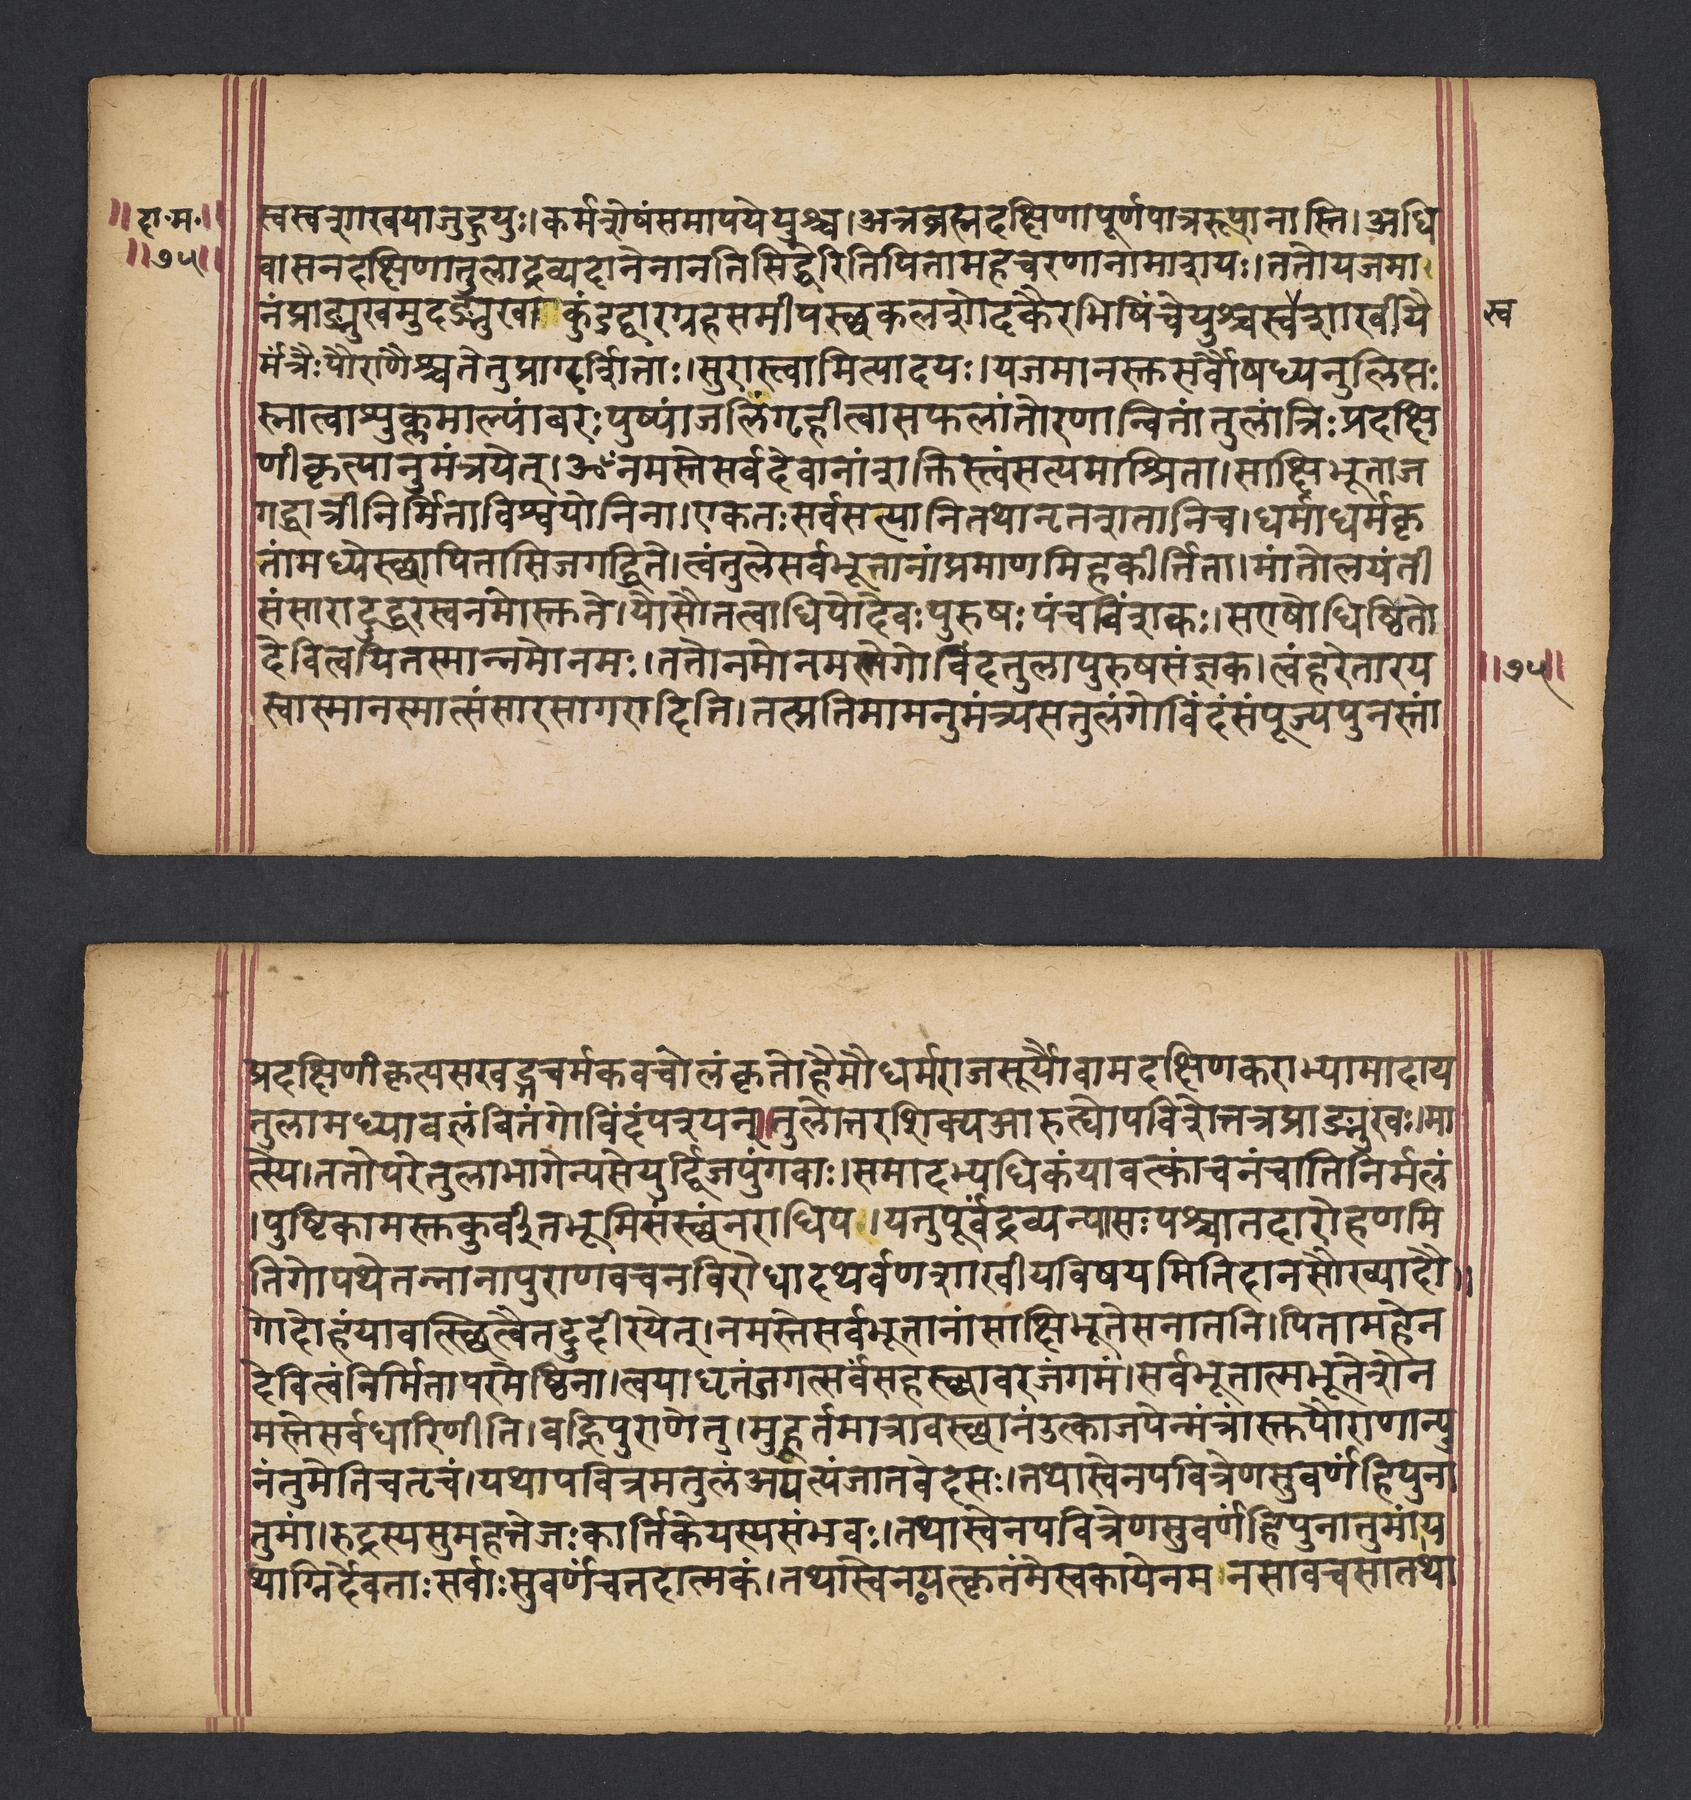 ॥दा॰म॰॥
॥७५॥
स्वस्वशाखयाजुहुयुः।कर्मशेषंसमापयेयुश्च।अत्रब्रह्मदक्षिणापूर्णपात्ररूपानास्ति।अधि
वासनदक्षिणातुलाद्रव्यदानेनानतिसिद्धेरितिपितामहचरणानामाशयः।ततोयजमा
नंप्राङ्मुखमुदङ्मुखा कुंडद्वारग्रहसमीपस्थकलशोदकैरभिषिंचेयुश्चस्वशाखीयै
स्व
र्मंत्रैःपौराणैश्चतेतुप्राग्दर्शिताः।सुरास्त्वामित्यादयः।यजमानस्तुसर्वौषध्यनुलिप्तः
स्नात्वाशुक्लमाल्यांबरःपुष्पांजलिंगृहीत्वासफलांतोरणान्वितांतुलांत्रिःप्रदक्षि
णीकृत्यानुमंत्रयेत्।ॐनमस्तेसर्वदेवानांशक्तिस्त्वंसत्यमाश्रिता।साक्षिभूताज
गद्धात्रीनिर्मिताविश्वयोनिना।एकतःसर्वसत्यानितथानृतशतानिच।धर्माधर्मकृ
तांमध्येस्थापितासिजगद्धिते।त्वंतुलेसर्वभूतानांप्रमाणमिहकीर्तिता।मांतोलयंती
संसारादुद्धरस्वनमोस्तुते।योसौतत्वाधिपोदेवःपुरुषःपंचविंशकः।सएषोधिष्ठितो
देवित्वयितस्मान्नमोनमः।ततोनमोनमस्तेगोविंदतुलापुरुषसंज्ञक।त्वंहरेतारय
॥७५॥
स्वास्मानस्मात्संसारसागरादिति।तत्प्रतिमामनुमंत्र्यसतुलंगोविंदंसंपूज्यपुनस्तां
प्रदक्षिणीकृत्यसखड्गचर्मकवचोलंकृतोहैमौधर्मराजसूर्यौवामदक्षिणकराभ्यामादाय
तुलामध्यावलंबितंगोविंदंपश्यन्॥तुलोत्तरशिक्यआरुह्योपविशेत्तत्रप्राङ्मुखः।मा
त्स्ये।ततोपरेतुलाभागेन्यसेयुर्द्विजपुंगवाः।समादभ्यधिकंयावत्कांचनंचातिनिर्मलं
।पुष्टिकामस्तुकुर्वीतभूमिसंस्थंनराधिप ।यत्तुपूर्वंद्रव्यन्यासःपश्चात्तदारोहणमि
तिगोपथेतन्नानापुराणवचनविरोधादथर्वणशाखीयविषयमितिदानसौख्यादौ॥
गोदोहंयावत्स्थित्वैतदुदीरयेत्।नमस्तेसर्वभूतानांसाक्षिभूतेसनातनि।पितामहेन
देवित्वंनिर्मितापरमेष्ठिना।त्वयाधृतंजगत्सर्वंसहस्थावरजंगमं।सर्वभूतात्मभूतेशेन
मस्तेसर्वधारिणीति।वह्निपुराणेतु।मुहूर्तमात्रावस्थानंउक्त्काजपेन्मंत्रांस्तुपौराणान्पु
नंतुमेतिचतृचं।यथापवित्रमतुलंअपत्यंजातवेदसः।तथास्वेनपवित्रेणसुवर्णंहिपुना
तुमां।रुद्रस्यसुमहत्तेजःकार्तिकेयस्यसंभवः।तथास्वेनपवित्रेणसुवर्णंहिपुनातुमांय
थाग्निर्देवताःसर्वाःसुवर्णंचतदात्मकं।तथास्वेनयत्कृतंमेस्वकायेनम नसावचसातथा